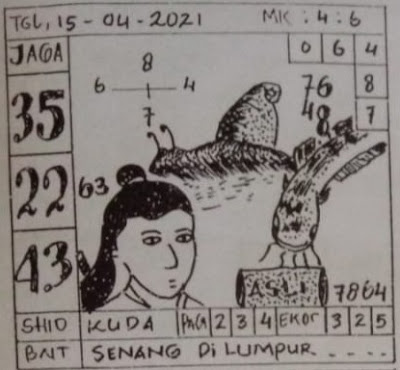 TGL, 15 - 04 - 2021 MK : 4 : 6
JAGA 0 6 4
8
6 4 76 8
35 7 48 7
22 63
43
ASLI 7864
SHIO KUDA PAGA 2 3 4 EKOR 3 2 5
BNT SENANG Di LUMPUR - - - -